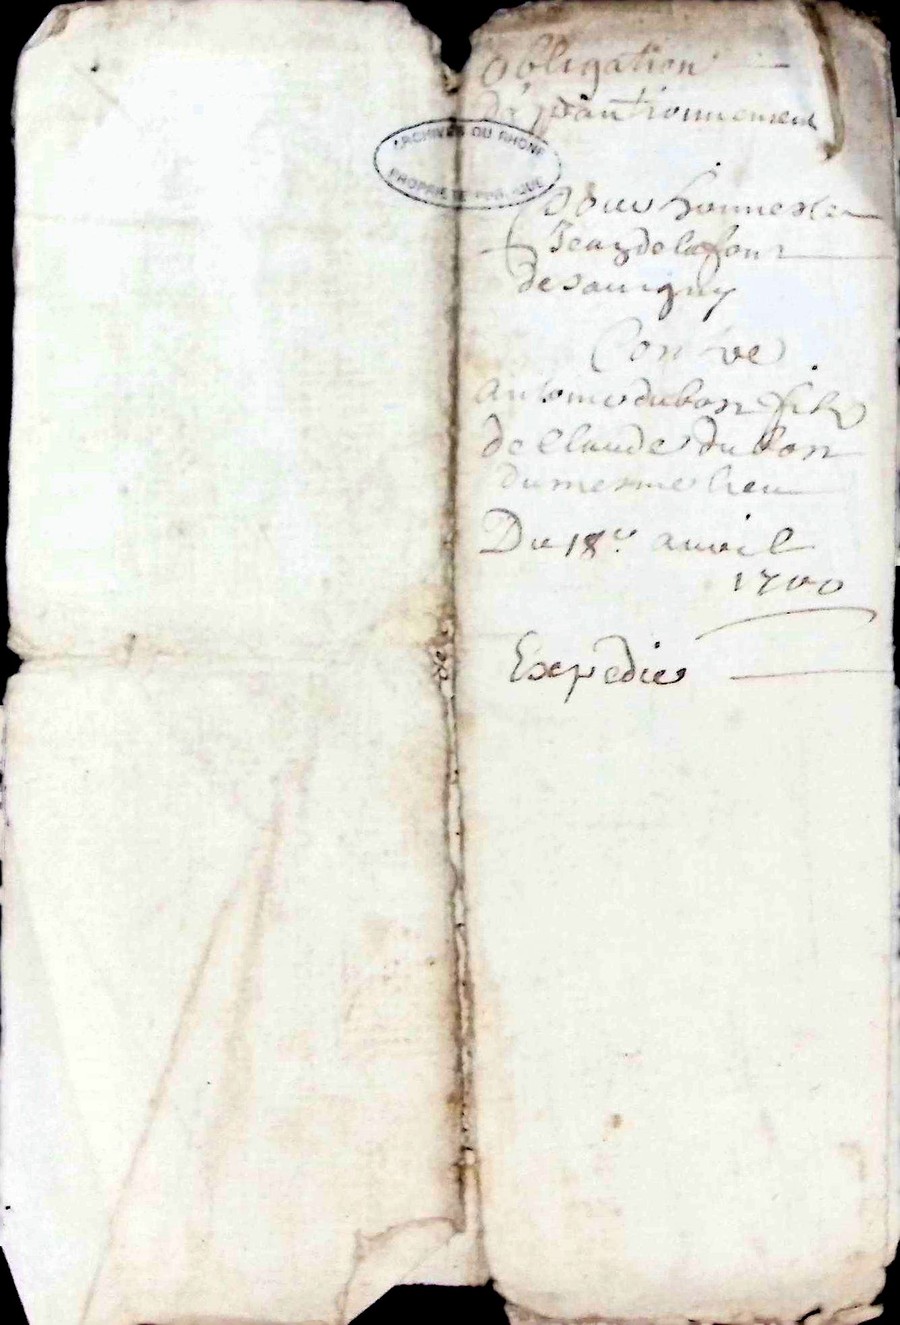 Obligation
ARCHIVES DU RHONE
PROPRIETE PUBLIQUE
Pour honneste
Jean de lafont
de Sauigny
Contre
Antoine dubost filz
de Claude du bost
du mesme lieu
Du 18e auril
1700
Expedie